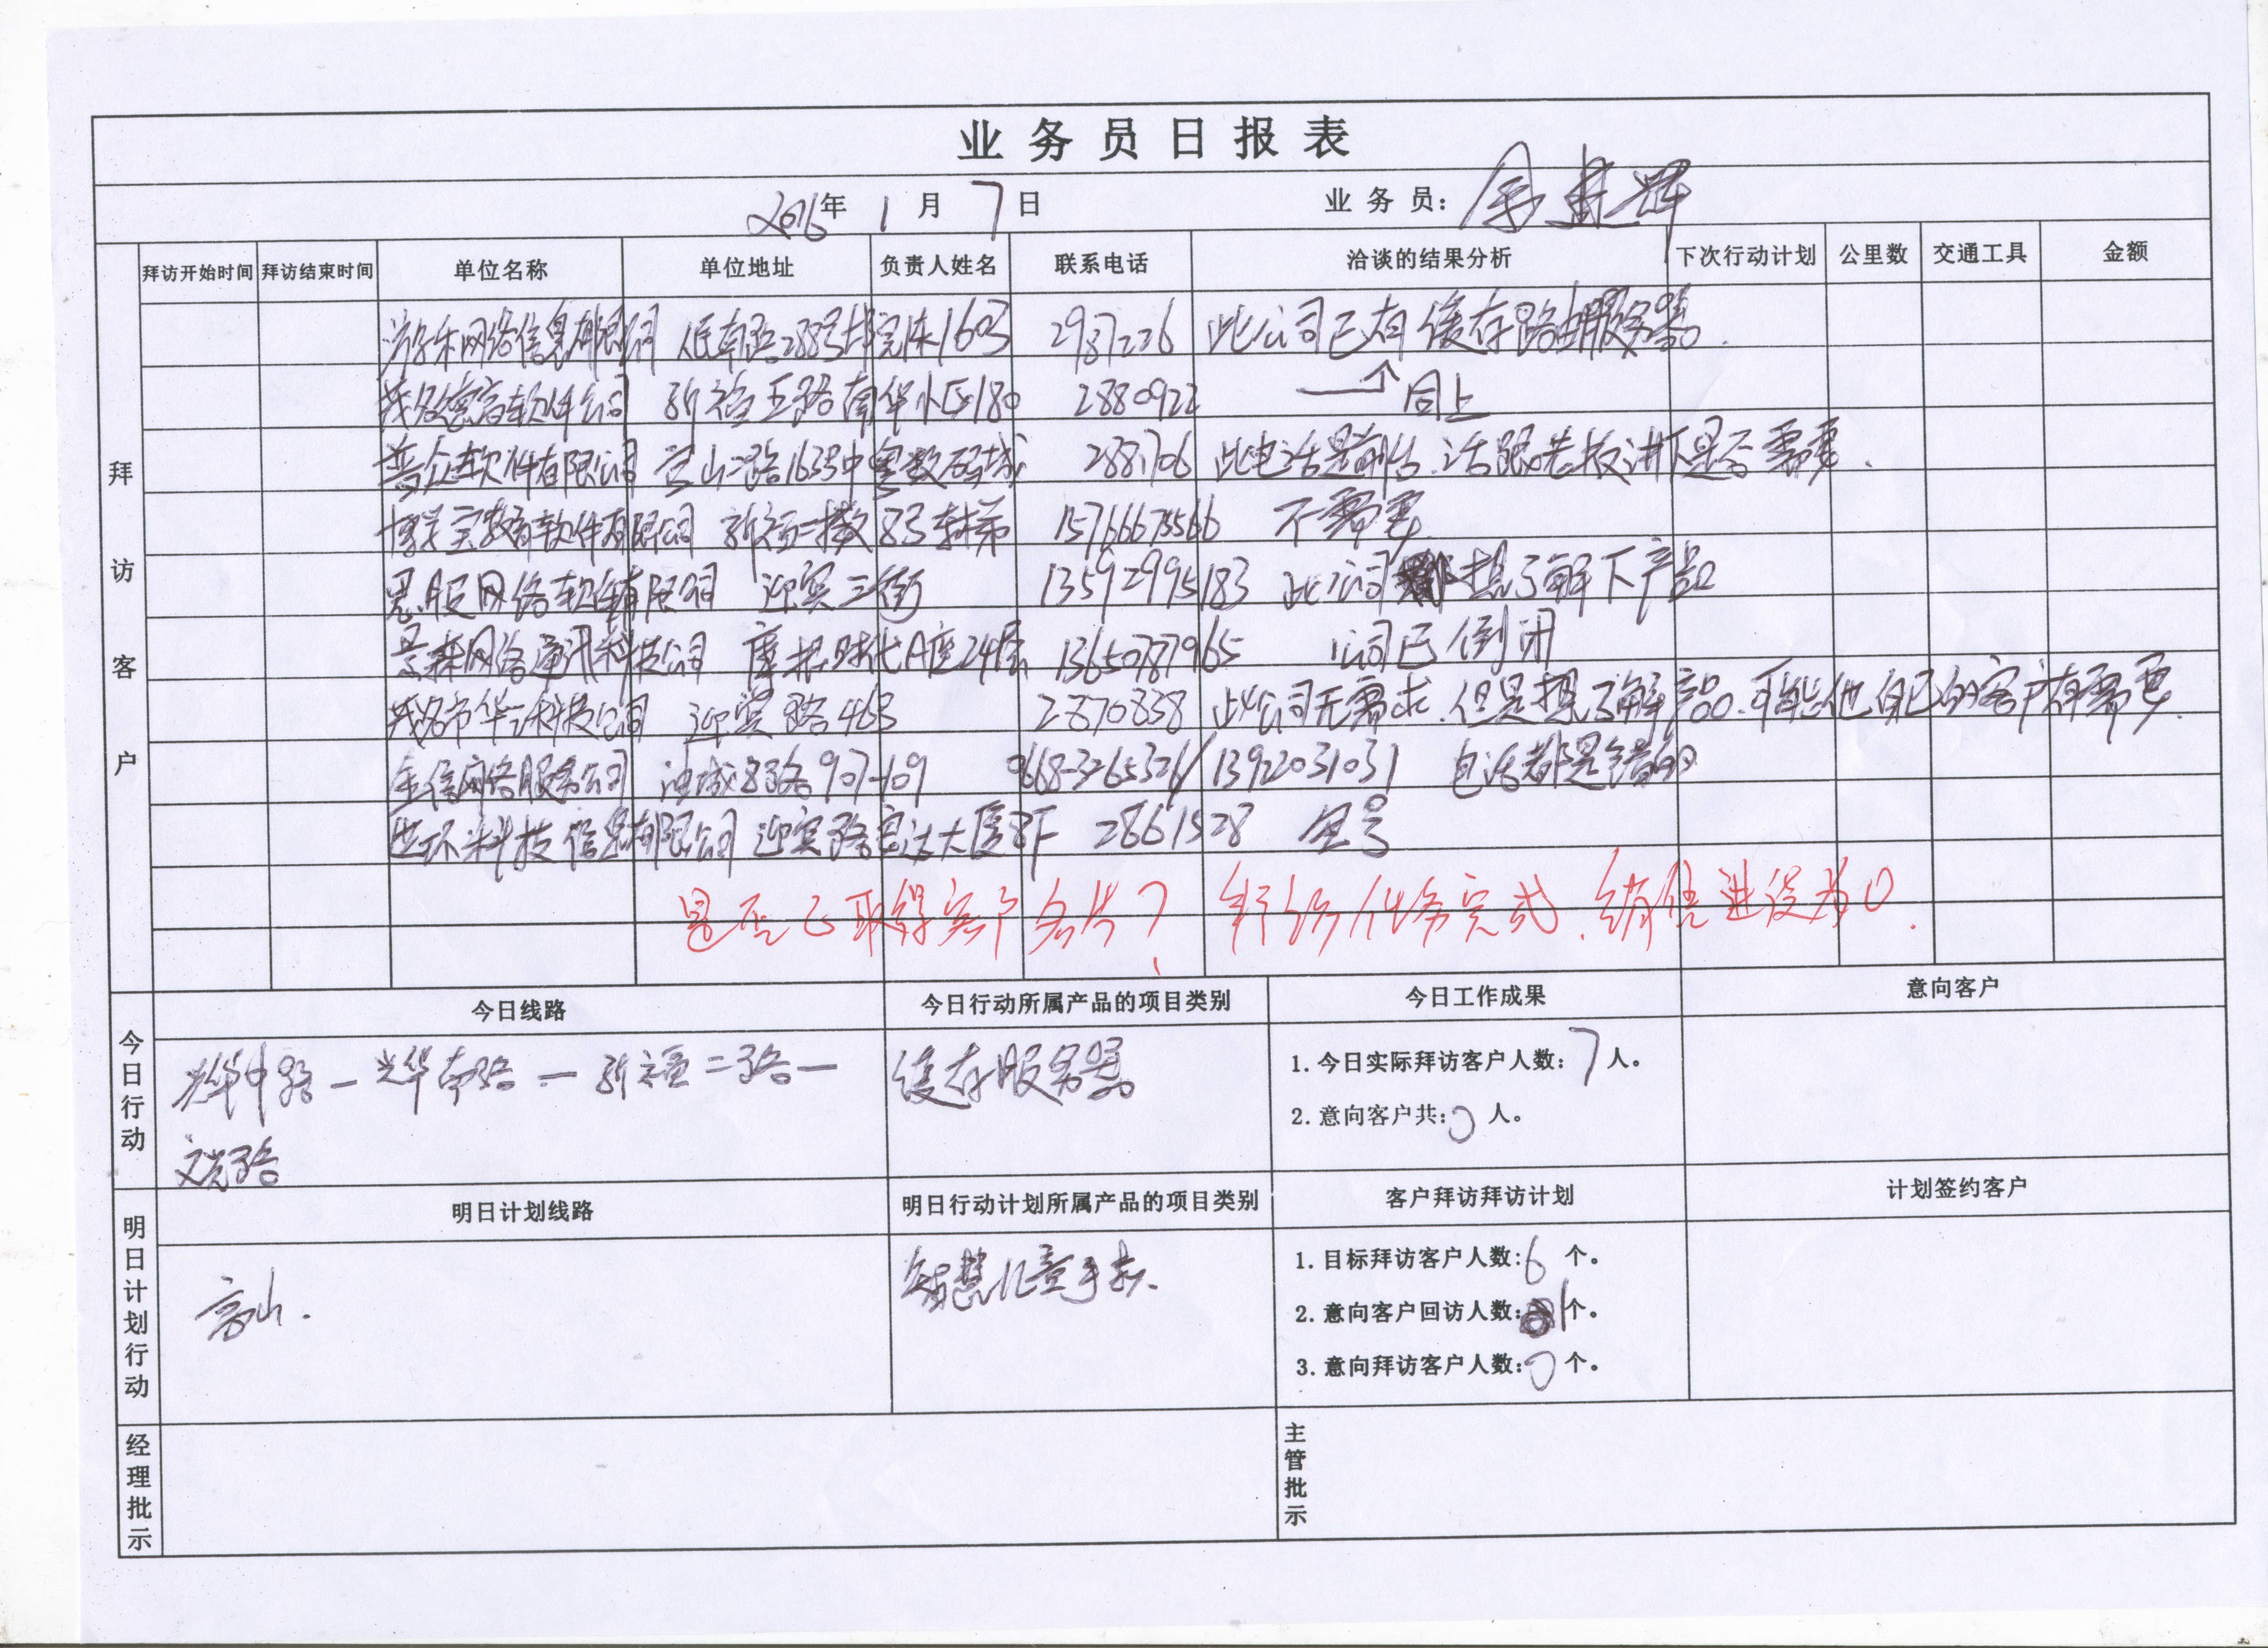 业务员日报表
2016年 1月 7日 业务员:
拜访客户 拜访开始时间 拜访结束时间 单位名称 单位地址 负责人姓名 联系电话 洽谈的结果分析 下次行动计划 公里数 交通工具 金额
网络信息有限公司 288号 1603 2987226 此公司已有缓存路由服务器.
软件公司 新福五路南华小区180 2880922 同上
普企软件有限公司 163号中粤数码城 2881706 此电话是前台.
博学宝教育软件有限公司 新福二 8号 15766675566 不需要
思服网络软件有限公司 迎宾三街 13592995183 此公司 想了解下产品
景森网络通讯科技公司 摩根时代A座24层 13650787965 公司已倒闭
茂名市华 科技公司 迎宾路463 2870838 此公司无需求.但是想了解产品.可能他自己的客户有需要.
网络服务公司 油城8路907-109 0668-3265326/13922031031 电话都是错的
世环科技信息有限公司 迎宾路宏达大厦8F 2861528 空号
是否已取得客户名片? 行动任务完成.销售进设为0.
今日行动 今日线路 今日行动所属产品的项目类别 今日工作成果 意向客户
光华中路—光华南路—新福二路— 缓存服务器 1.今日实际拜访客户人数:7人。
2.意向客户共:0人。
路
明日计划行动 明日计划线路 明日行动计划所属产品的项目类别 客户拜访拜访计划 计划签约客户
智慧儿童手表. 1.目标拜访客户人数:6个。
2.意向客户回访人数:1个。
3.意向拜访客户人数:0个。
经理批示 主管批示